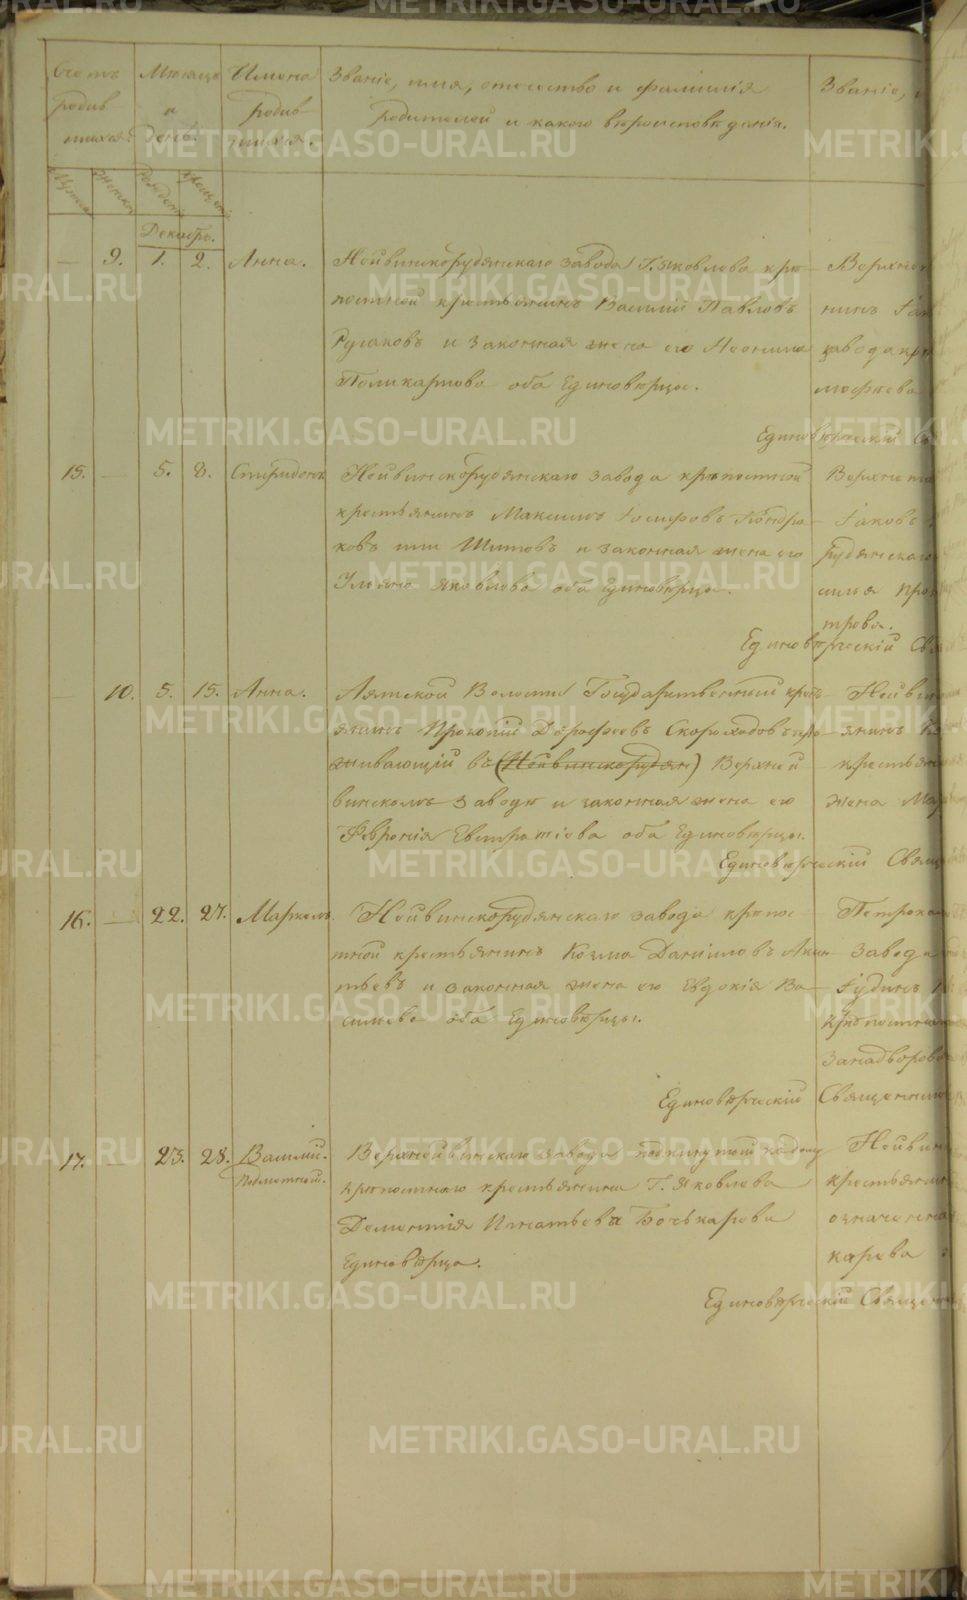 Счетъ родив- шихся.
Мужеска
Женска
Месяцъ и день.
Рожденія
Крещенія
Имена родив- шихся.
Званіе, имя, отчество и фамилія
родителей и какого вѣроисповѣданія.
Званіе, и
Декабрь.
— 9. 1. 2. Анна.
Нейвинскорудянскаго завода Г. Яковлева крѣ-
постной крестьянинъ Василій Павловъ
Русаковъ и законная жена его
Поликарпова оба Единовѣрцы.
Верхне
нинъ
завода кр
Единовѣрческій С
15. — 5. 8. Спиридонъ
Нейвинскорудянскаго завода крѣпостной
крестьянинъ Максимъ Іосифовъ Кондра-
ковъ или Шитовъ и законная жена его
Ульяна Яковлева оба Единовѣрцы.
Верхне
Іаковъ
рудянскаго
трова.
Единовѣрческій Св
— 10. 5. 15. Анна.
Аятской Волости Государственный кресть-
янинъ Прокопій Дорофеевъ Скороходовъ про-
живающій въ (Нейвинскорудян) Верхней-
винскомъ заводѣ и законная жена его
Февронія Евстратіева оба Единовѣрцы.
Нейвин
янинъ
крестьян
жена Ма
Единовѣрческій Свящ
16. — 22. 27. Маркелъ.
Нейвинскорудянскаго завода крѣпос-
тной крестьянинъ Козма Даніиловъ Акин-
тьевъ и законная жена его Евдокія Ва-
сильева оба Единовѣрцы.
Петрока
завода
Крѣпостна
Занадворова
Единовѣрческій Священни
17. — 23. 28. Василій.
Подметный.
Верхнейвинскаго завода подкинутый къ дому
крѣпостнаго крестьянина Г. Яковлева
Дементія Игнатьева Бочькарева
Единовѣрца.
Нейвин
крестьянин
означенна
карева
Единовѣрческій Священ
METRIKI.GASO-URAL.RU